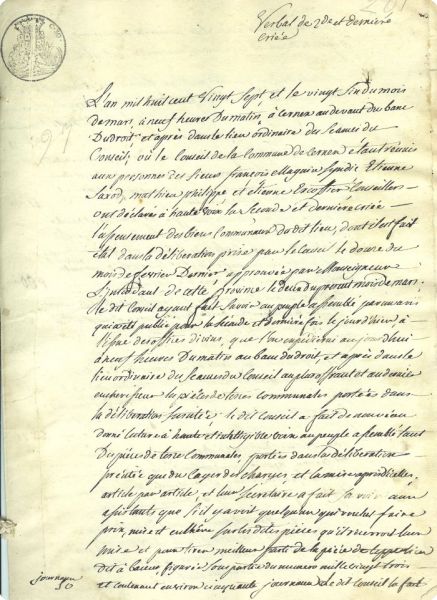 Verbal de 2de et derniere
criée
L'an mil huit cent Vingt Sept et le vingt Six du mois
de mars, à neuf heures du matin, à Cernex au devant du banc
Du droit, et après dans le lieu ordinaire du Seances du
Conseil, où le Conseil de la Commune de Cernex étant réuni
aux personnes des Sieurs françois Magnin Syndic Etienne
Saxod, mathieu philippe et étienne Escoffier Conseillers
ont déclaré à haute voix la Seconde et derniere criée
l'assencement des biens Communaux du dit lieu, dont il est fait
état dans la délibération prise par le Conseil le douze du
mois de février Dernier approuvée par Monseigneur
L'intendant de cette province le deux du present mois de mars.
le dit Conseil ayant fait Savoir au peuple assemblé, par un avis
qui a été publié pour la Seconde et derniere fois le jour d'hier à
l'issue des offices divins, que l'on expédiera aujourd'hui
à neuf heures Du matin au banc du droit, et après dans le
lieu ordinaire du Seances du Conseil au plus offrant et au dernier
encherisseur les pièces de terres communales portées dans
la délibération le dit Conseil a fait de nouveau
donné lecture à haute et intelligible voix au peuple assemblé tant
Des pièces de terres Communales portées dans la délibération
précitée que du Cayer des charges, et la mise à prix d'icelles,
article par article, et leur Secretaire a fait Savoir aux
assistants que s'il y avoit quelqu'un qui voulut faire
prix, mise et enchère sur les dites pièces qu'il recevroit leur
mise et pour tirer meilleur parti de la pièce de
dit à figurée sous partie du numero mille vingt trois
et contenant environ cinquante journaux le dit Conseil la fait
journaux
50